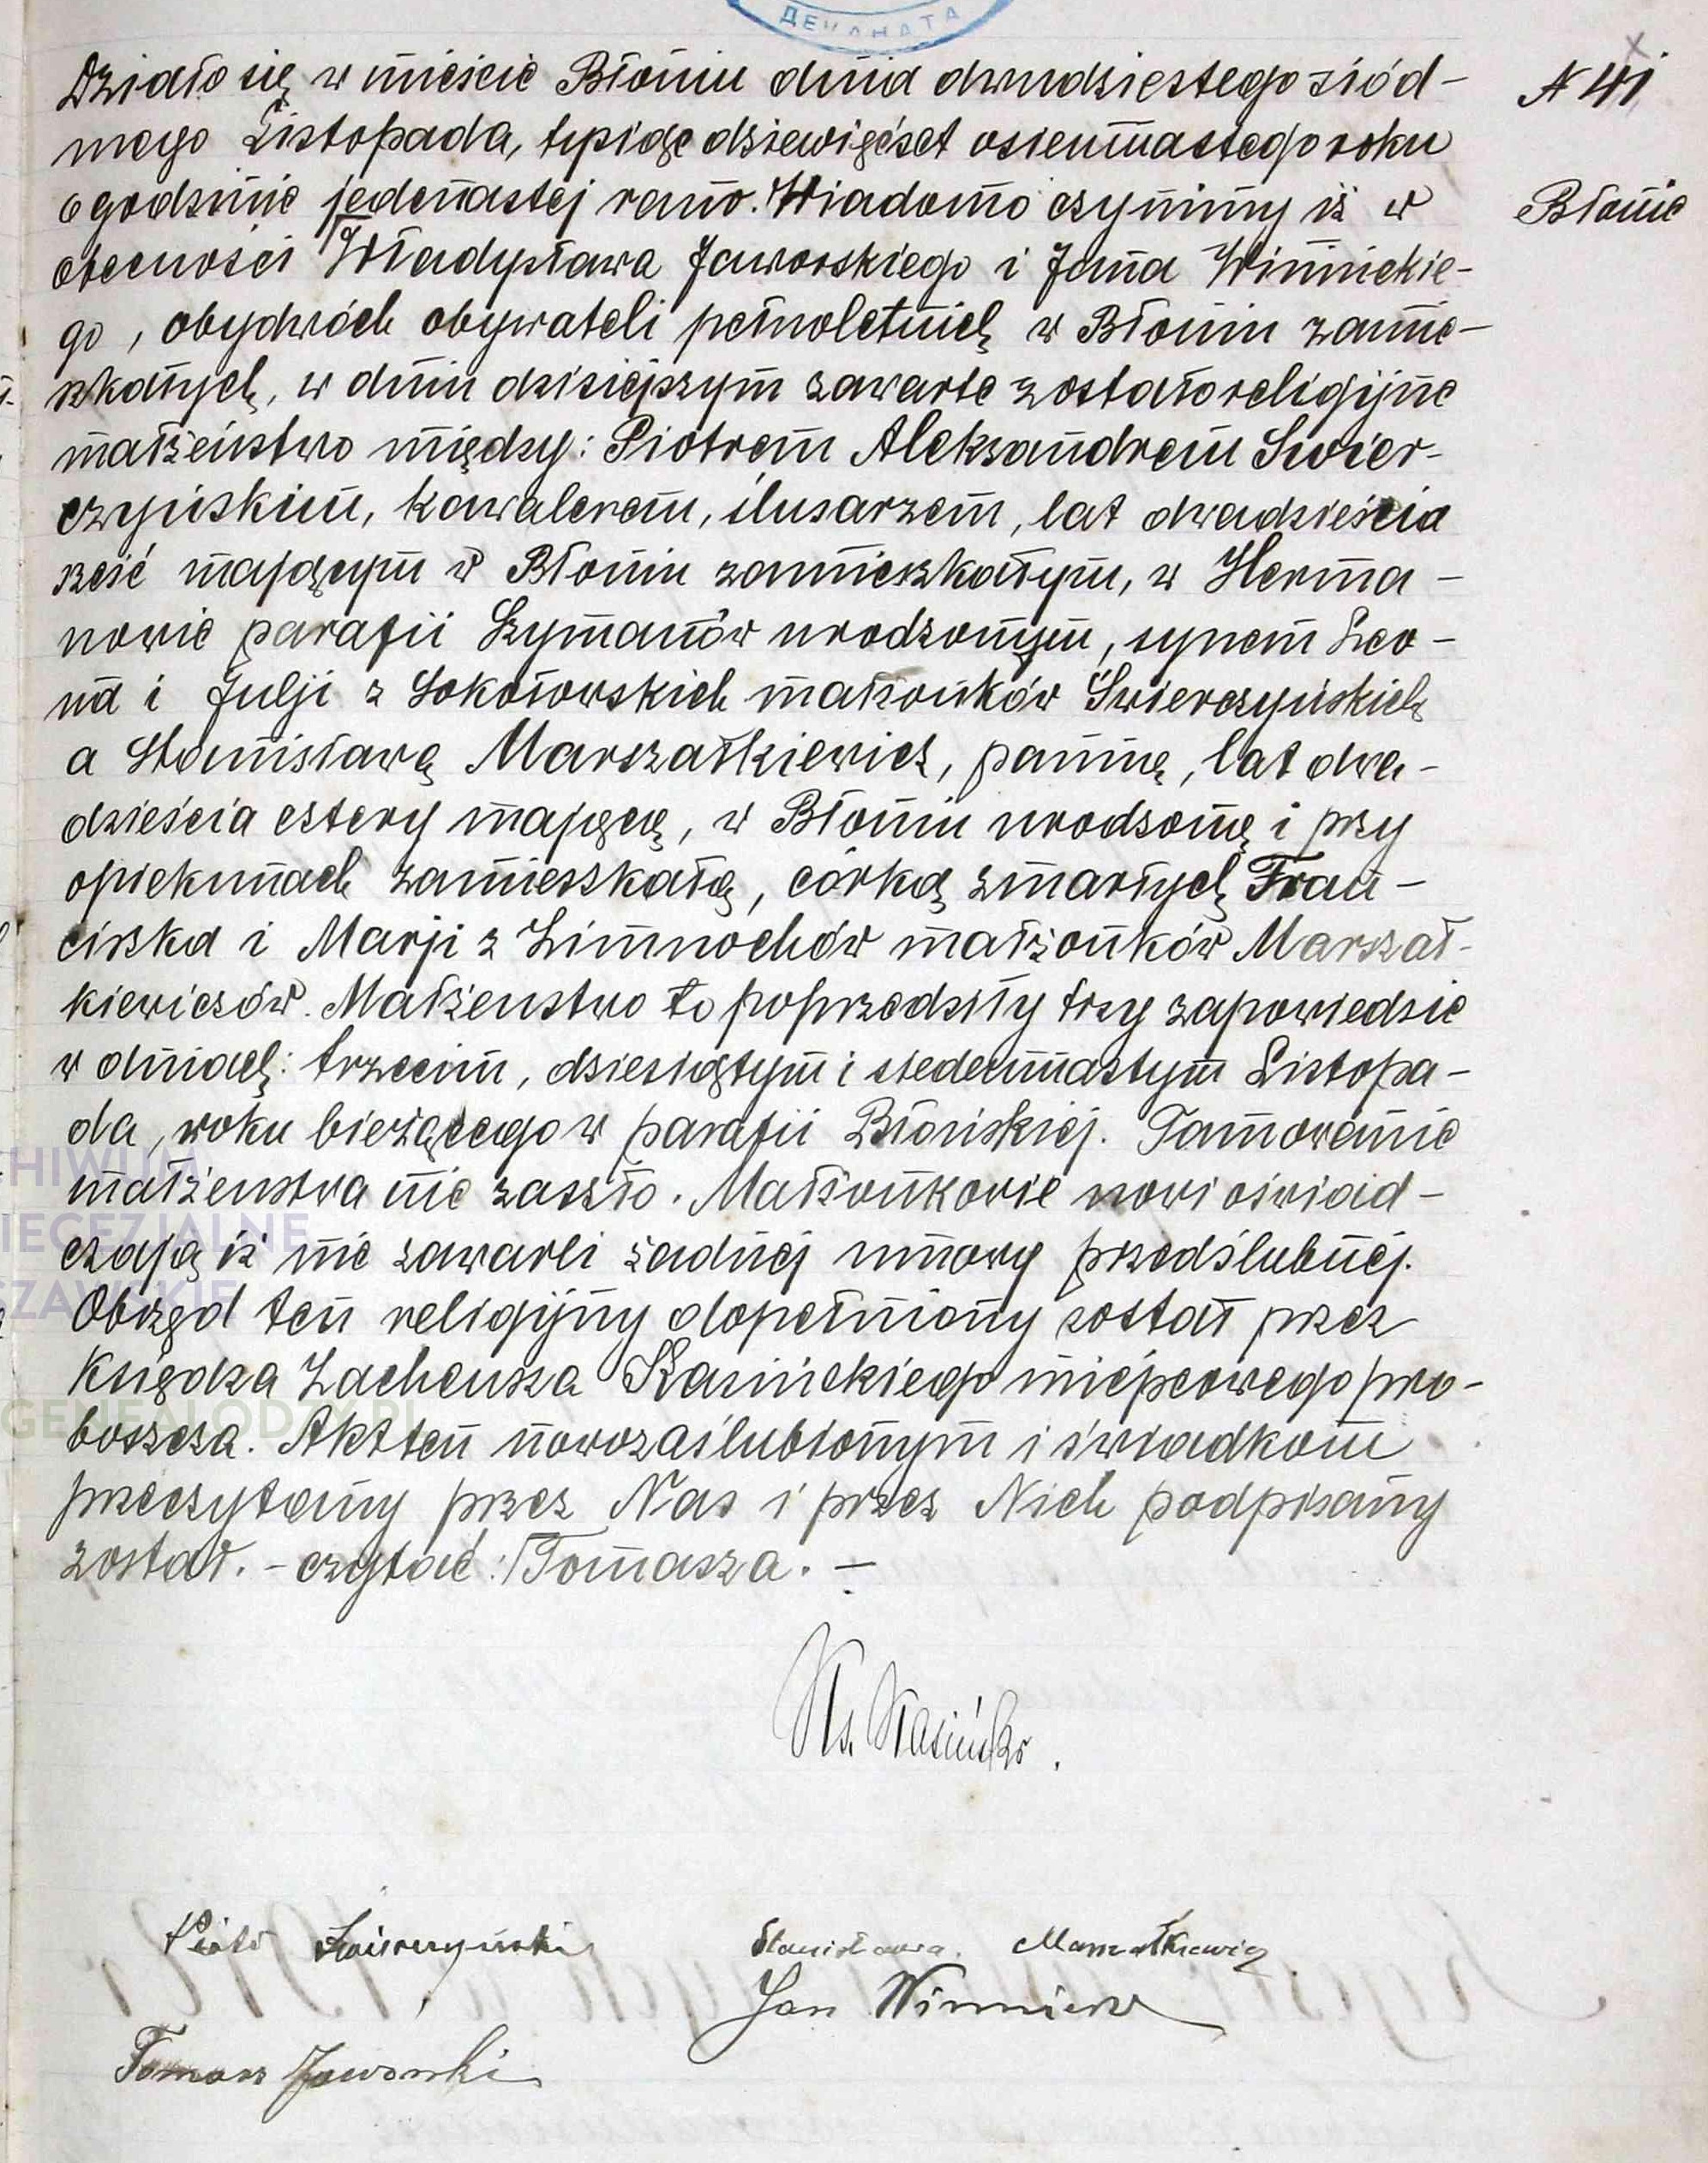 ДЕКАНАТА
Działo się w mieście Błoniu dnia dwudziestego siód-
mego Listopada, tysiąc dziewięćset osiemnastego roku
o godzinie jedenastej rano. Wiadomo czynimy iż w
obecności Władysława Jaworskiego i Jana Winnickie-
go, obydwóch obywateli pełnoletnich w Błoniu zamie-
szkałych, w dniu dzisiejszym zawarte zostało religijne
małżeństwo między: Piotrem Aleksandrem Swier-
czyńskim, kawalerem, ślusarzem, lat dwadzieścia
sześć mającym w Błoniu zamieszkałym, w Herma-
nowie parafii Szymanów urodzonym, synem Leo-
na i Julji z Sokołowskich małżonków Świerczyńskich
a Stanisławą Marszałkiewicz, panną, lat dwa-
dzieścia cztery mającą, w Błoniu urodzoną i przy
opiekunach zamieszkałą, córką zmarłych Fran-
ciszka i Marji z Zimnochów małżonków Marszał-
kiewiczów. Małżenstwo to poprzedziły trzy zapowiedzie
w dniach: trzecim, dziesiątym i siedemnastym Listopa-
da, roku bieżącego w parafii Błońskiej. Tamowanie
małżenstwa nie zaszło. Małżonkowie nowi oświad-
czają iż nie zawarli żadnej umowy przedślubnej.
Obrzęd ten religijny dopełniony został przez
Księdza Zacheusza Kasińskiego miejscowego pro-
boszcza. Akt ten nowozaślubionym i świadkom
przeczytany przez Nas i przez Nich podpisany
został. - czytać: Tomasza. -
Ks. Kasiński.
Piotr Świerczyński Stanisława Marszałkiewicz
Jan Winnicki
Tomasz Jaworski
N 41
Błonie
HIWUM
IECEZJALNE
SZAWSKIE
GENEALODZY.PL